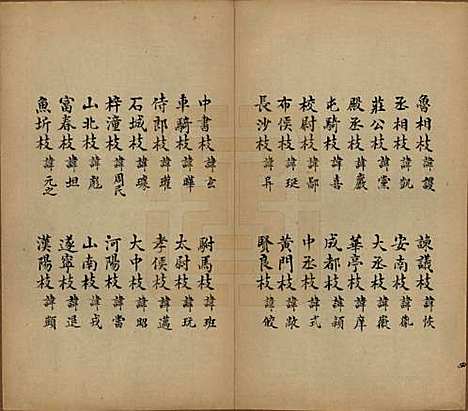 魯相枝 諱謖
丞相枝 諱凱
莊公枝 諱棠
殿丞枝 諱嚴
屯騎枝 諱喜
校尉枝 諱鄙
布侯枝 諱珽
長沙枝 諱昇
諫議枝 諱恢
安南枝 諱胤
大丞枝 諱徽
華亭枝 諱庠
成都枝 諱穎
中丞枝 諱式
黃門枝 諱敞
賢良枝 諱儉
中書枝 諱玄
車騎枝 諱曄
侍郎枝 諱瓘
石城枝 諱璩
梓潼枝 諱周氏
山北枝 諱彪
富春枝 諱坦
魚圻枝 諱元之
駙馬枝 諱班
太尉枝 諱玩
孝侯枝 諱邁
大中枝 諱昭
河陽枝 諱當
山南枝 諱戎
遂寧枝 諱退
漢陽枝 諱顗